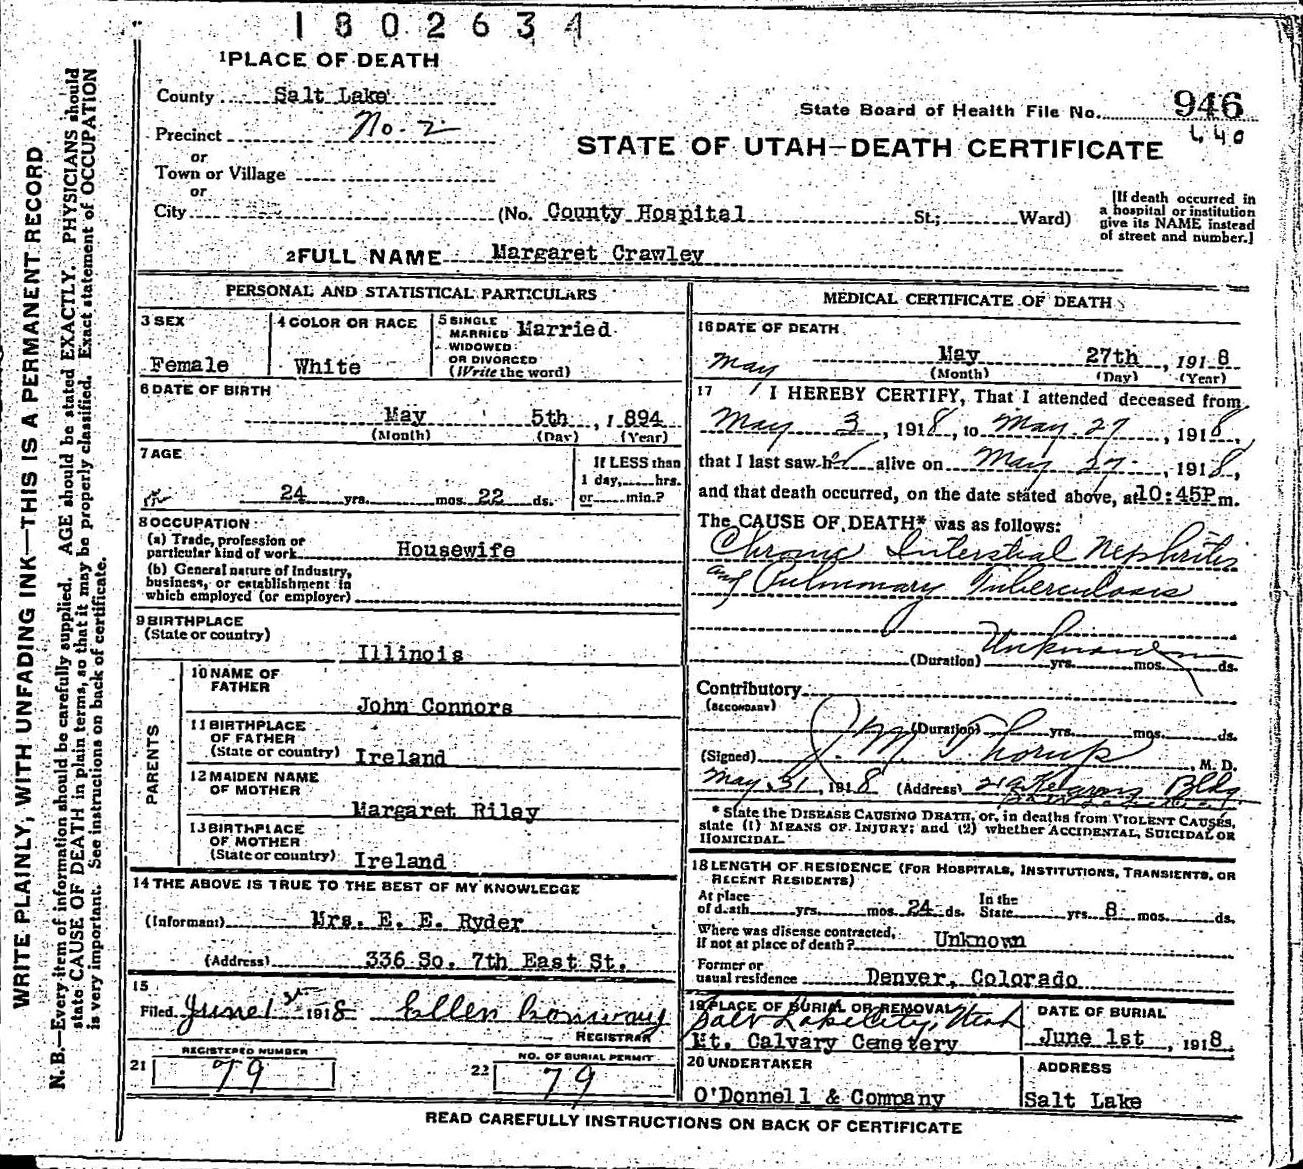 1802634
1 PLACE OF DEATH
County Salt Lake
State Board of Health File No. 946
Precinct No. 2
440
or
STATE OF UTAH—DEATH CERTIFICATE
Town or Village
or
City (No. County Hospital St.; Ward)
[If death occurred in
a hospital or institution
give its NAME instead
of street and number.]
2 FULL NAME Margaret Crawley
PERSONAL AND STATISTICAL PARTICULARS
3 SEX
Female
4 COLOR OR RACE
White
5 SINGLE
MARRIED
WIDOWED
OR DIVORCED
(Write the word)
Married
6 DATE OF BIRTH
May 5th, 1894
(Month) (Day) (Year)
7 AGE
24 yrs. mos. 22 ds.
If LESS than
1 day, hrs.
or min.?
8 OCCUPATION
(a) Trade, profession or
particular kind of work Housewife
(b) General nature of Industry,
business, or establishment in
which employed (or employer)
9 BIRTHPLACE
(State or country)
Illinois
PARENTS
10 NAME OF
FATHER
John Connors
11 BIRTHPLACE
OF FATHER
(State or country) Ireland
12 MAIDEN NAME
OF MOTHER
Margaret Riley
13 BIRTHPLACE
OF MOTHER
(State or country) Ireland
14 THE ABOVE IS TRUE TO THE BEST OF MY KNOWLEDGE
(Informant) Mrs. E. E. Ryder
(Address) 336 So. 7th East St.
15
Filed June 1st 1918 Ellen Conway
REGISTRAR
21 REGISTERED NUMBER
79
22 NO. OF BURIAL PERMIT
79
MEDICAL CERTIFICATE OF DEATH
16 DATE OF DEATH
May May 27th, 1918
(Month) (Day) (Year)
17 I HEREBY CERTIFY, That I attended deceased from
May 3, 1918, to May 27, 1918,
that I last saw her alive on May 27, 1918,
and that death occurred, on the date stated above, at 10:45P m.
The CAUSE OF DEATH* was as follows:
Chronic Interstial Nephritis
and Pulmonary Tuberculosis
Unknown
(Duration) yrs. mos. ds.
Contributory
(SECONDARY)
(Duration) yrs. mos. ds.
(Signed) J. M. Thorup, M. D.
May 31, 1918 (Address) 219 Kearns Bldg
* State the DISEASE CAUSING DEATH, or, in deaths from VIOLENT CAUSES,
state (1) MEANS OF INJURY; and (2) whether ACCIDENTAL, SUICIDAL OR
HOMICIDAL.
18 LENGTH OF RESIDENCE (FOR HOSPITALS, INSTITUTIONS, TRANSIENTS, OR
RECENT RESIDENTS)
At place
of death yrs. mos. 24 ds.
In the
State yrs. 8 mos. ds.
Where was disease contracted,
if not at place of death? Unknown
Former or
usual residence Denver, Colorado
19 PLACE OF BURIAL OR REMOVAL
Salt Lake City, Utah
Mt. Calvary Cemetery
DATE OF BURIAL
June 1st, 1918
20 UNDERTAKER
O'Donnell & Company
ADDRESS
Salt Lake
READ CAREFULLY INSTRUCTIONS ON BACK OF CERTIFICATE
WRITE PLAINLY, WITH UNFADING INK—THIS IS A PERMANENT RECORD
N. B.—Every item of information should be carefully supplied. AGE should be stated EXACTLY. PHYSICIANS should
state CAUSE OF DEATH in plain terms, so that it may be properly classified. Exact statement of OCCUPATION
is very important. See instructions on back of certificate.